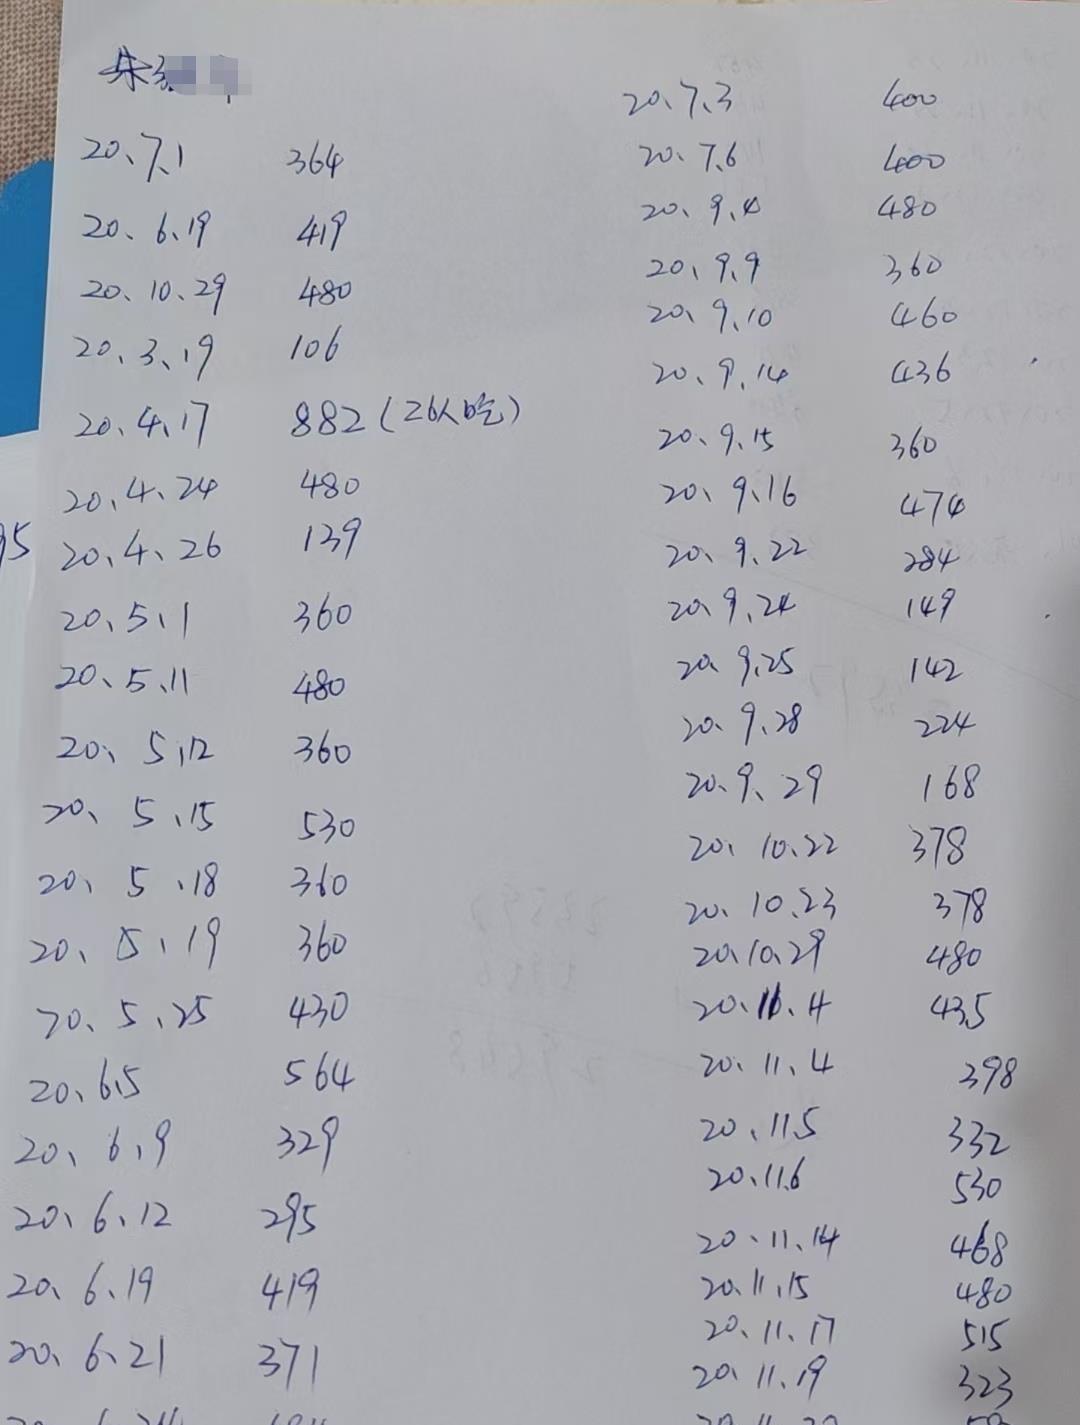 朱
20、7、1 364
20、6、19 419
20、10、29 480
20、3、19 106
20、4、17 882(26人吃)
20、4、24 480
20、4、26 139
20、5、1 360
20、5、11 480
20、5、12 360
20、5、15 530
20、5、18 360
20、5、19 360
20、5、25 430
20、6、5 564
20、6、9 329
20、6、12 295
20、6、19 419
20、6、21 371
95
20、7、3 400
20、7、6 400
20、9、4 480
20、9、9 360
20、9、10 460
20、9、14 436
20、9、15 360
20、9、16 474
20、9、22 284
20、9、24 149
20、9、25 142
20、9、28 224
20、9、29 168
20、10、22 378
20、10、23 378
20、10、29 480
20、11、4 435
20、11、4 398
20、11、5 332
20、11、6 530
20、11、14 468
20、11、15 480
20、11、17 515
20、11、19 323